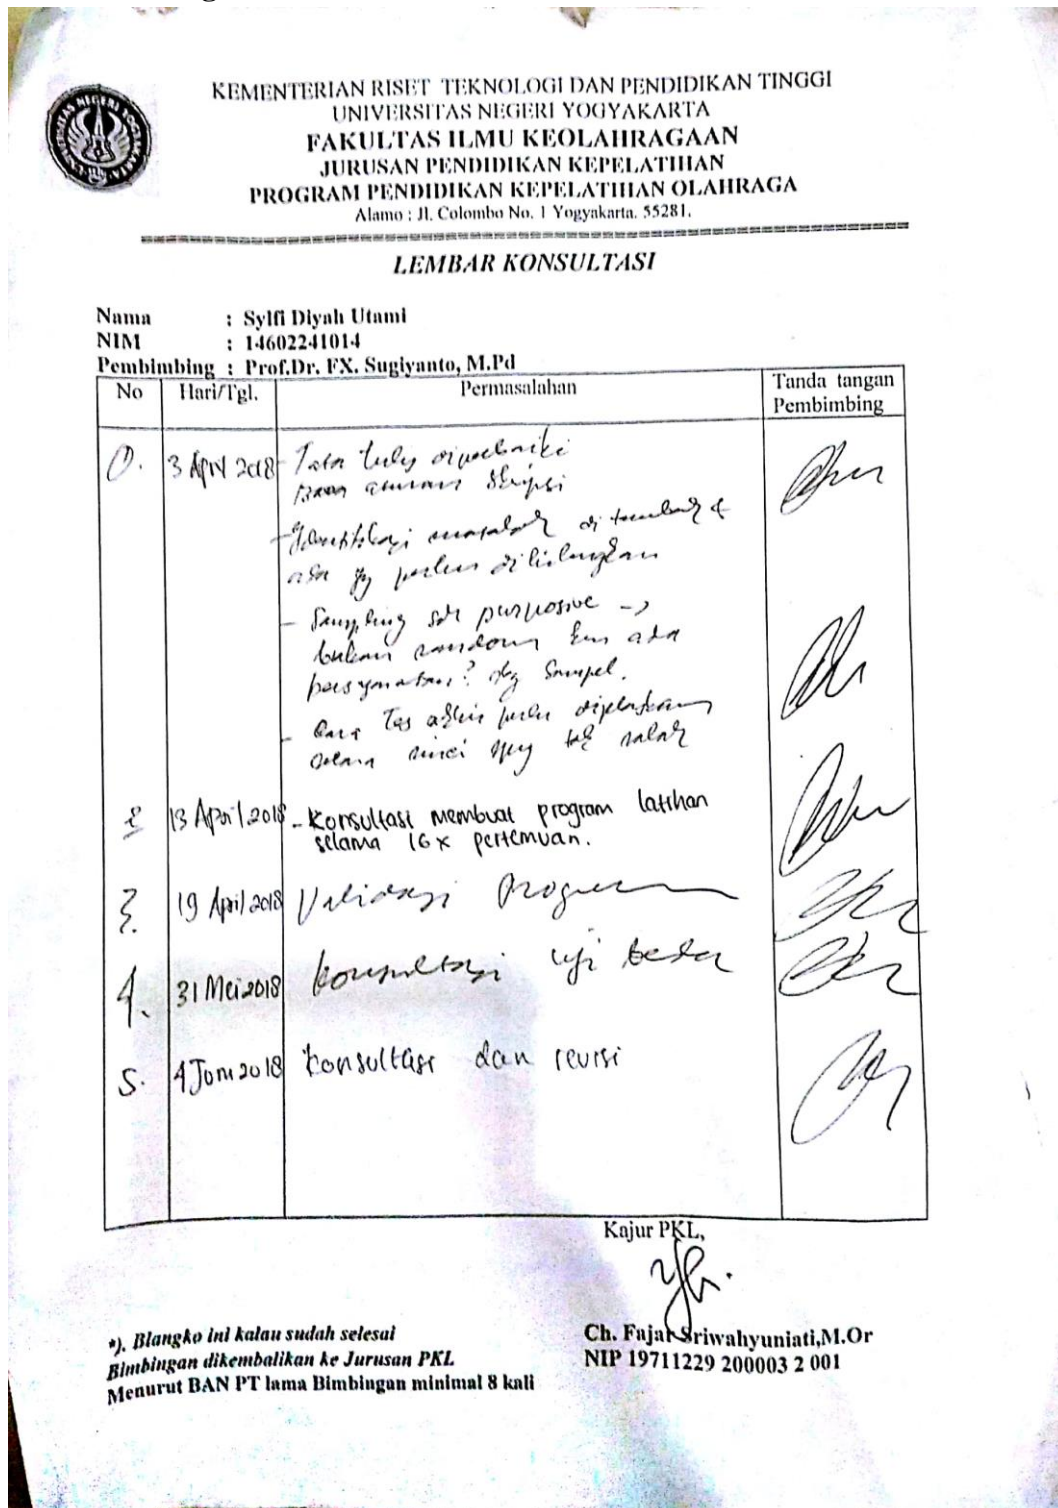 KEMENTERIAN RISET TEKNOLOGI DAN PENDIDIKAN TINGGI
UNIVERSITAS NEGERI YOGYAKARTA
FAKULTAS ILMU KEOLAHRAGAAN
JURUSAN PENDIDIKAN KEPELATIHAN
PROGRAM PENDIDIKAN KEPELATIHAN OLAHRAGA
Alamo : Jl. Colombo No. 1 Yogyakarta. 55281.
LEMBAR KONSULTASI
Nama : Sylfi Diyah Utami
NIM : 14602241014
Pembimbing : Prof.Dr. FX. Sugiyanto, M.Pd
No Hari/Tgl. Permasalahan Tanda tangan
Pembimbing
1. 3 April 2018 - Tata tulis diperbaiki
aturan skripsi
- Identifikasi masalah di tambah &
ada yg perlu dihilangkan
- Sampling purposive ->
bukan random ada
persyaratan? dg sampel.
- Cara Tes akhir perlu dijelaskan
secara rinci tak salah
2. 13 April 2018 - Konsultasi Membuat program latihan
selama 16x pertemuan.
3. 19 April 2018 Validasi Program
4. 31 Mei 2018 konsultasi uji beda
5. 4 Juni 2018 konsultasi dan revisi
Kajur PKL,
Ch. Fajar Sriwahyuniati,M.Or
NIP 19711229 200003 2 001
*). Blangko ini kalau sudah selesai
Bimbingan dikembalikan ke Jurusan PKL
Menurut BAN PT lama Bimbingan minimal 8 kali